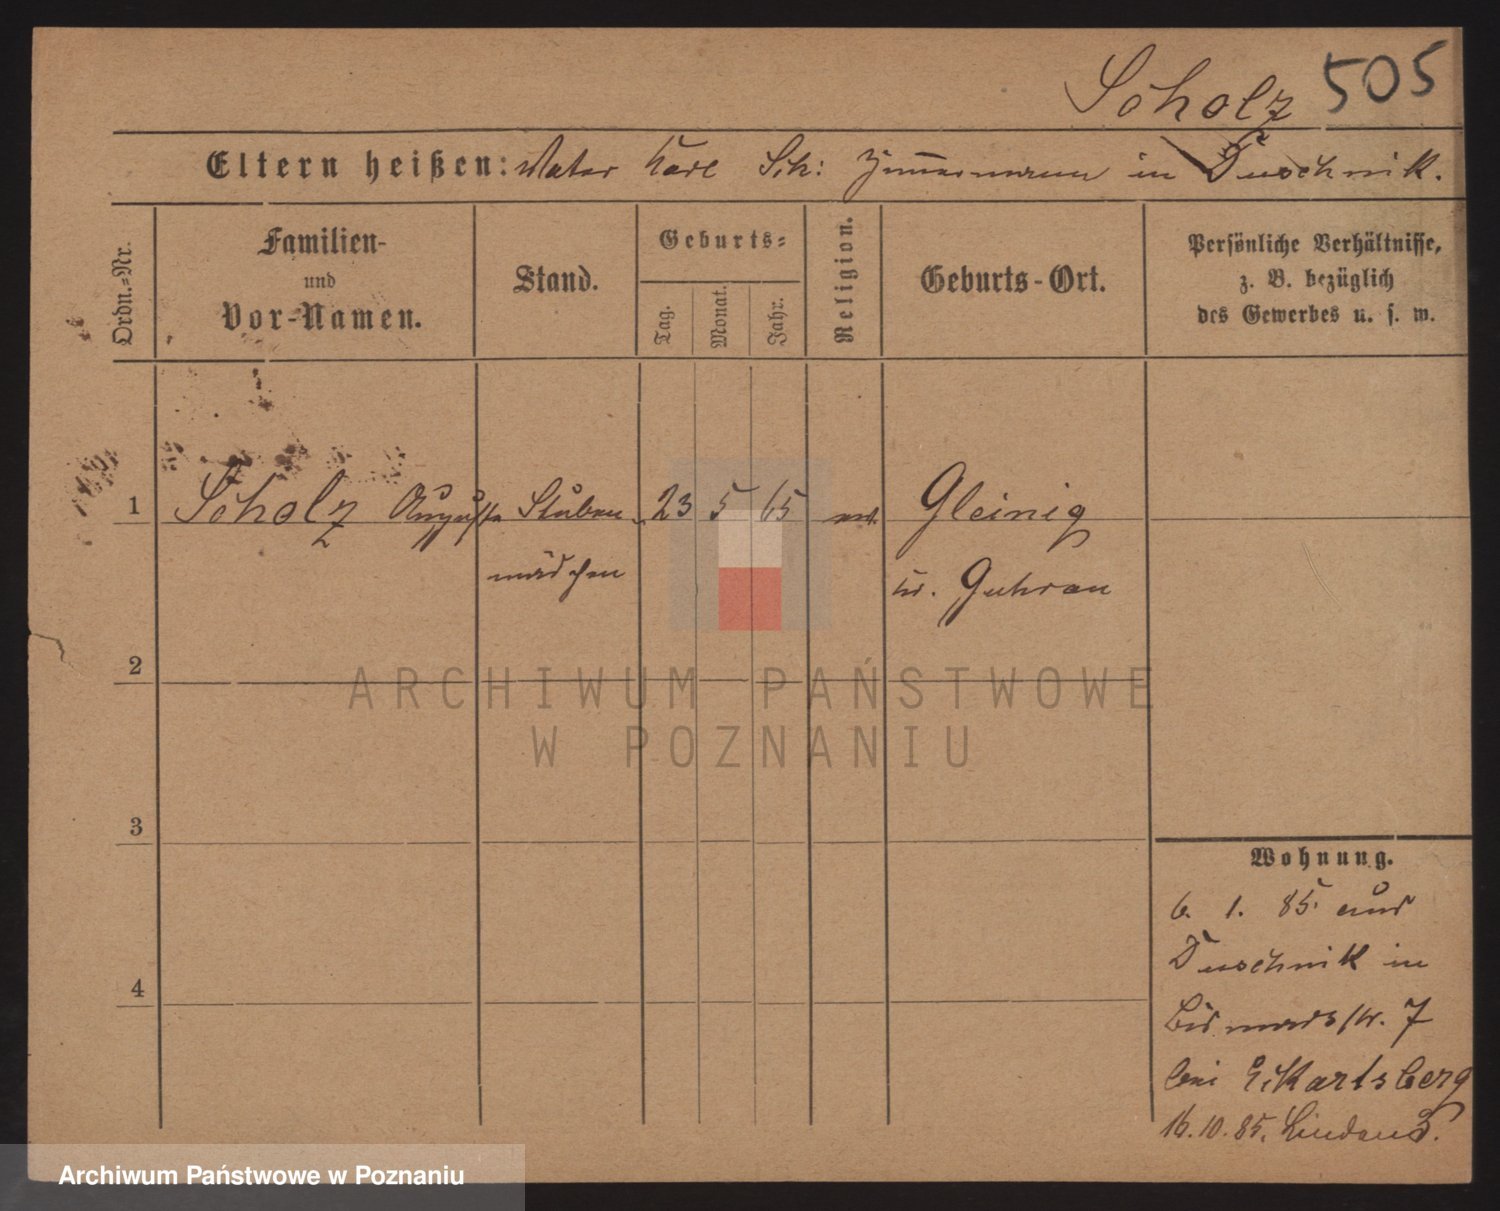 Scholz 505
Eltern heißen: Vater Karl Sch: Zimmermann in Duschnik.
Ordn.=Nr.
Familien-
und
Vor-Namen.
Stand.
Geburts=
Tag.
Monat.
Jahr.
Religion.
Geburts-Ort.
Persönliche Verhältnisse,
z. B. bezüglich
des Gewerbes u. s. w.
1 Scholz Auguste Stuben 23 5 65 ev. Gleinig
mädchen Kr. Guhrau
2
3
4
Wohnung.
6. 1. 85. aus
Duschnik in
Bismarckstr. 7
bei Eckartsberg
16.10.85.
ARCHIWUM PAŃSTWOWE
W POZNANIU
Archiwum Państwowe w Poznaniu